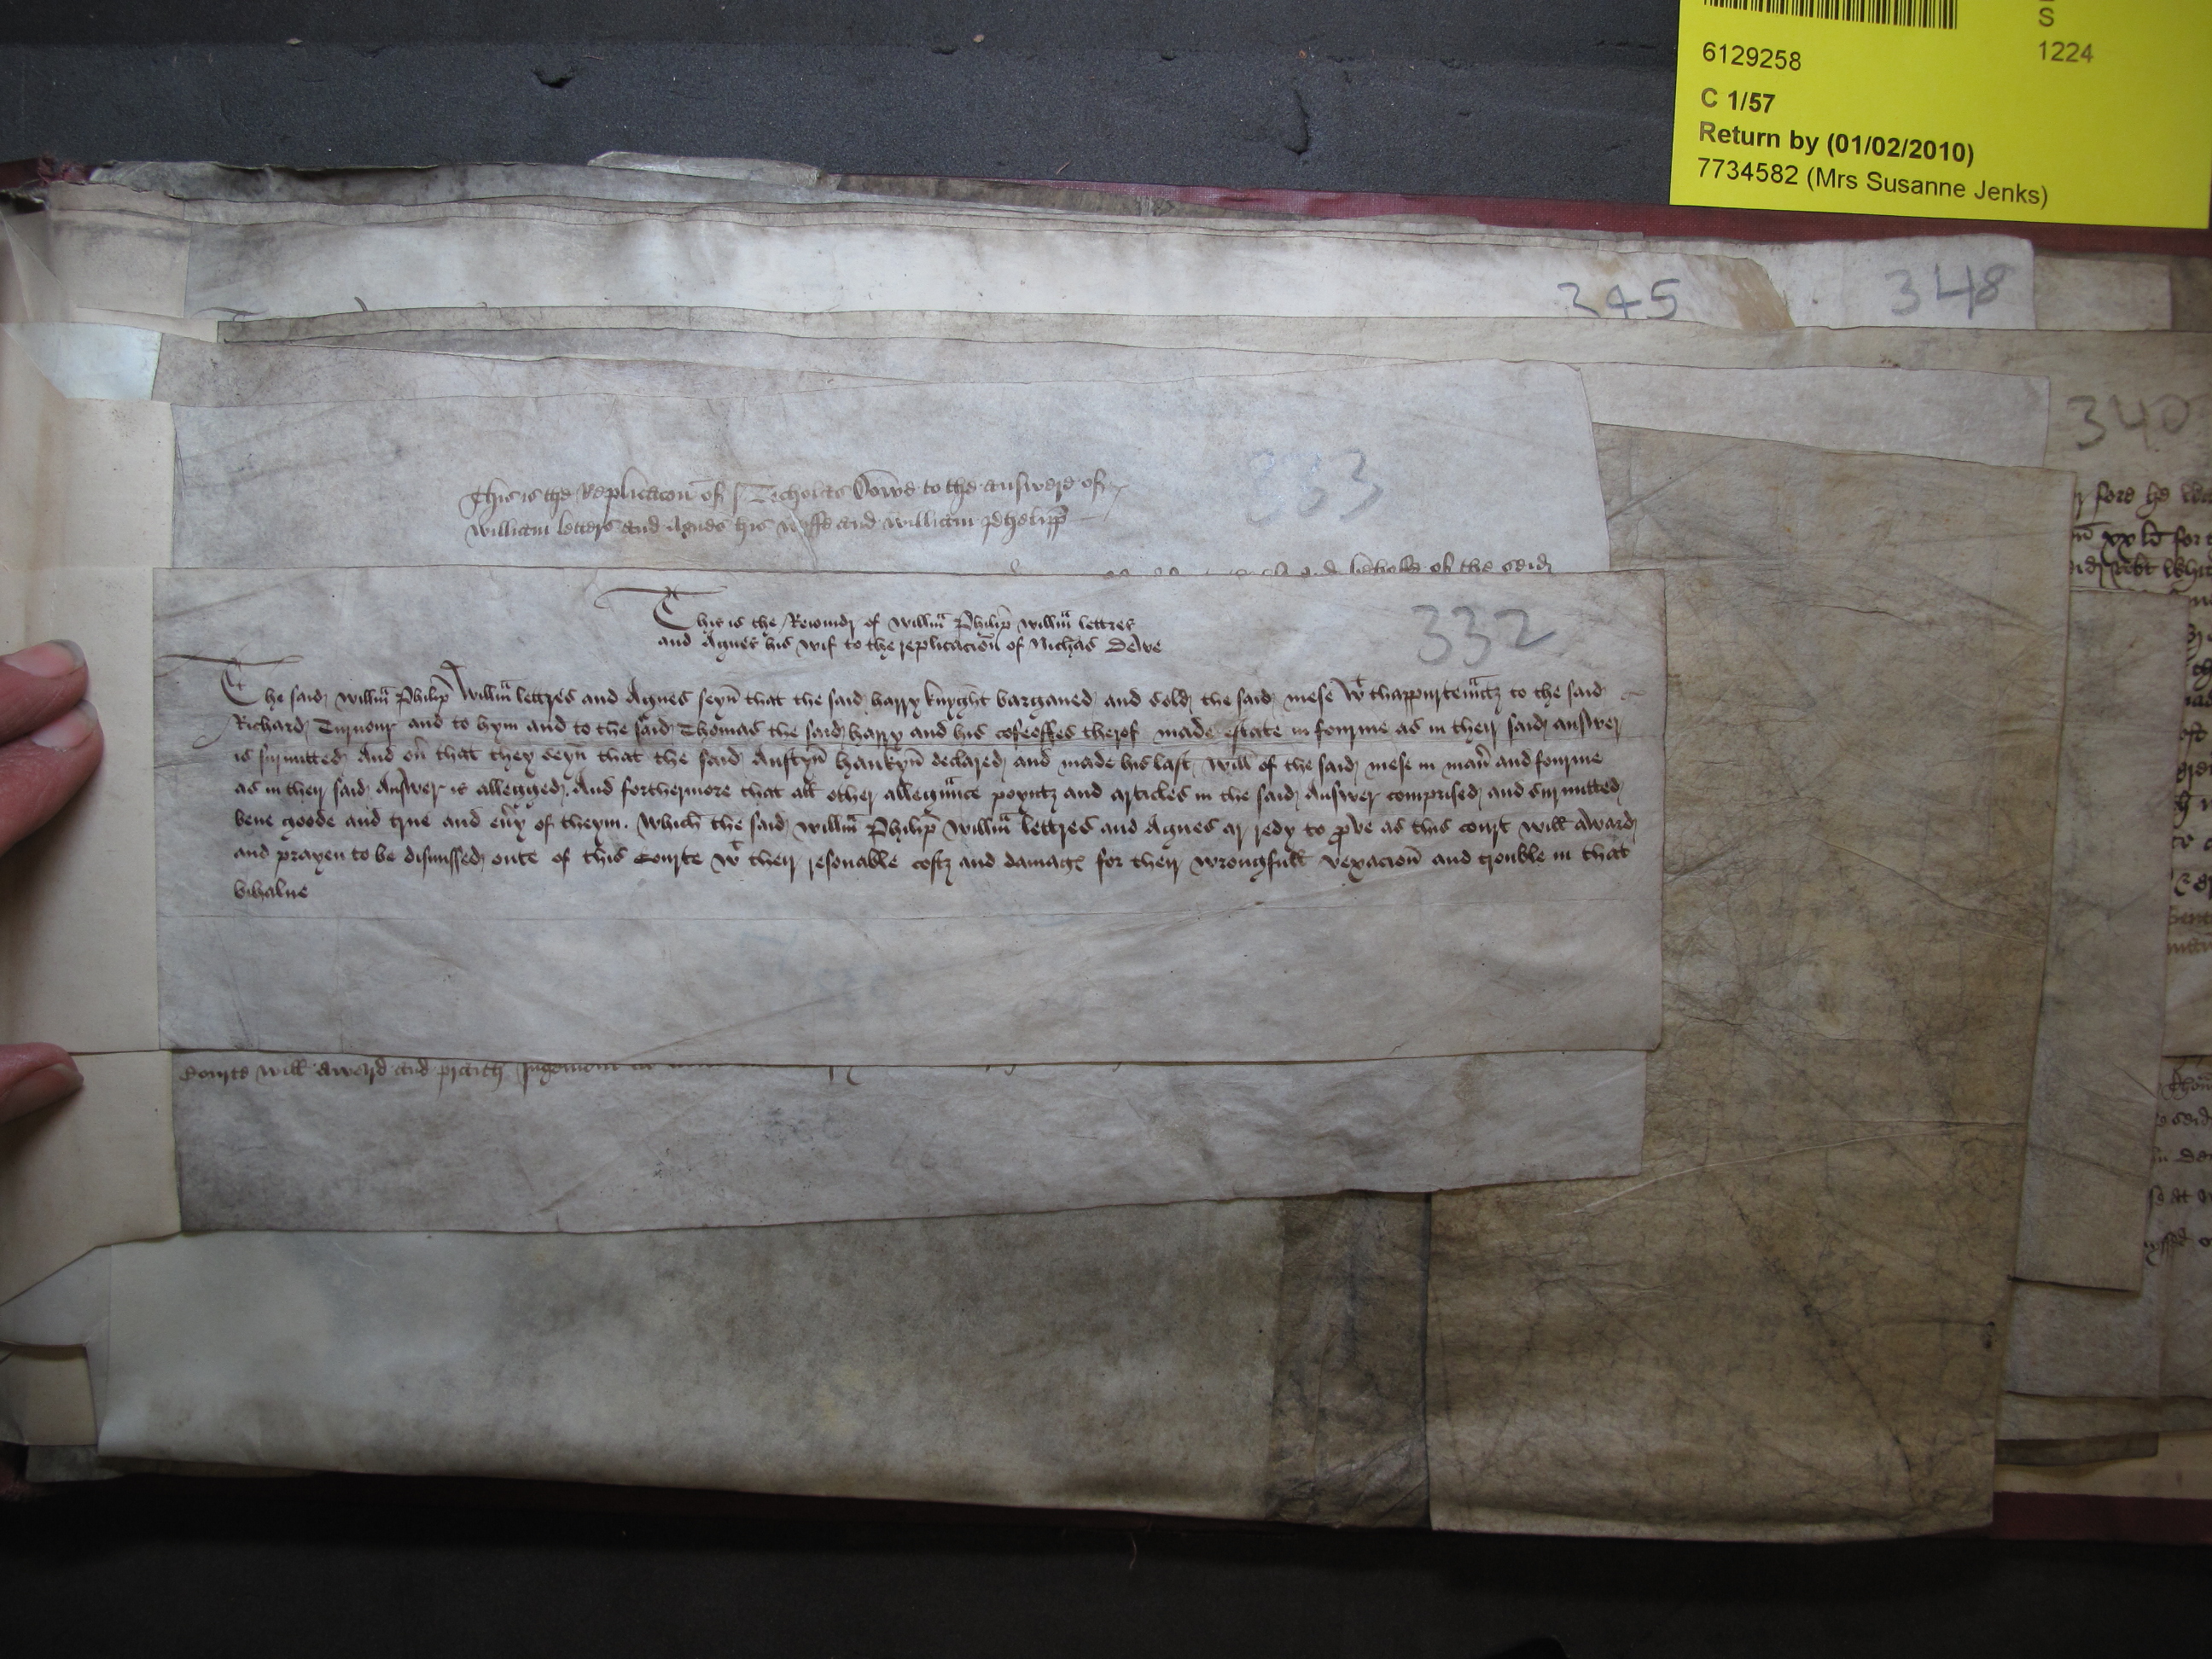 S
6129258
1224
C 1/57
Return by (01/02/2010)
7734582 (Mrs Susanne Jenks)
245
348
340
333
This is the Replicacon of Necholas Dowe to the answere of
William letters and Agnes his wyffe and William Phelipp
of the seid
332
This is the Reioindr of Willm Philip Willm lettres
and Agnes his wif to the replicacion of Nichas Dewe
The said Willm Philip Willm lettres and Agnes seyn that the said harry knyght barganed and sold the said mese wt thappurtenntz to the said
Richard Turnour and to hym and to the said Thomas the said harry and his cofeeffes therof made estate in fourme as in their said answer
is surmitted And on that they seyn that the said Austyn hankyn declared and made his last will of the said mese in maner and fourme
as in their said answer is allegged. And forthermore that all other allegeunce poyntz and articles in the said answer comprised and surmitted
bene goode and true and eury of theym. Which the said Willm Philip Willm lettres and Agnes ar redy to prove as this court will award
and prayen to be dismissed oute of this Courte wt their resonable costz and damagz for their wrongfull vexacion and trouble in that
bihalue
Courte will award and prieth
fore he
xx li for